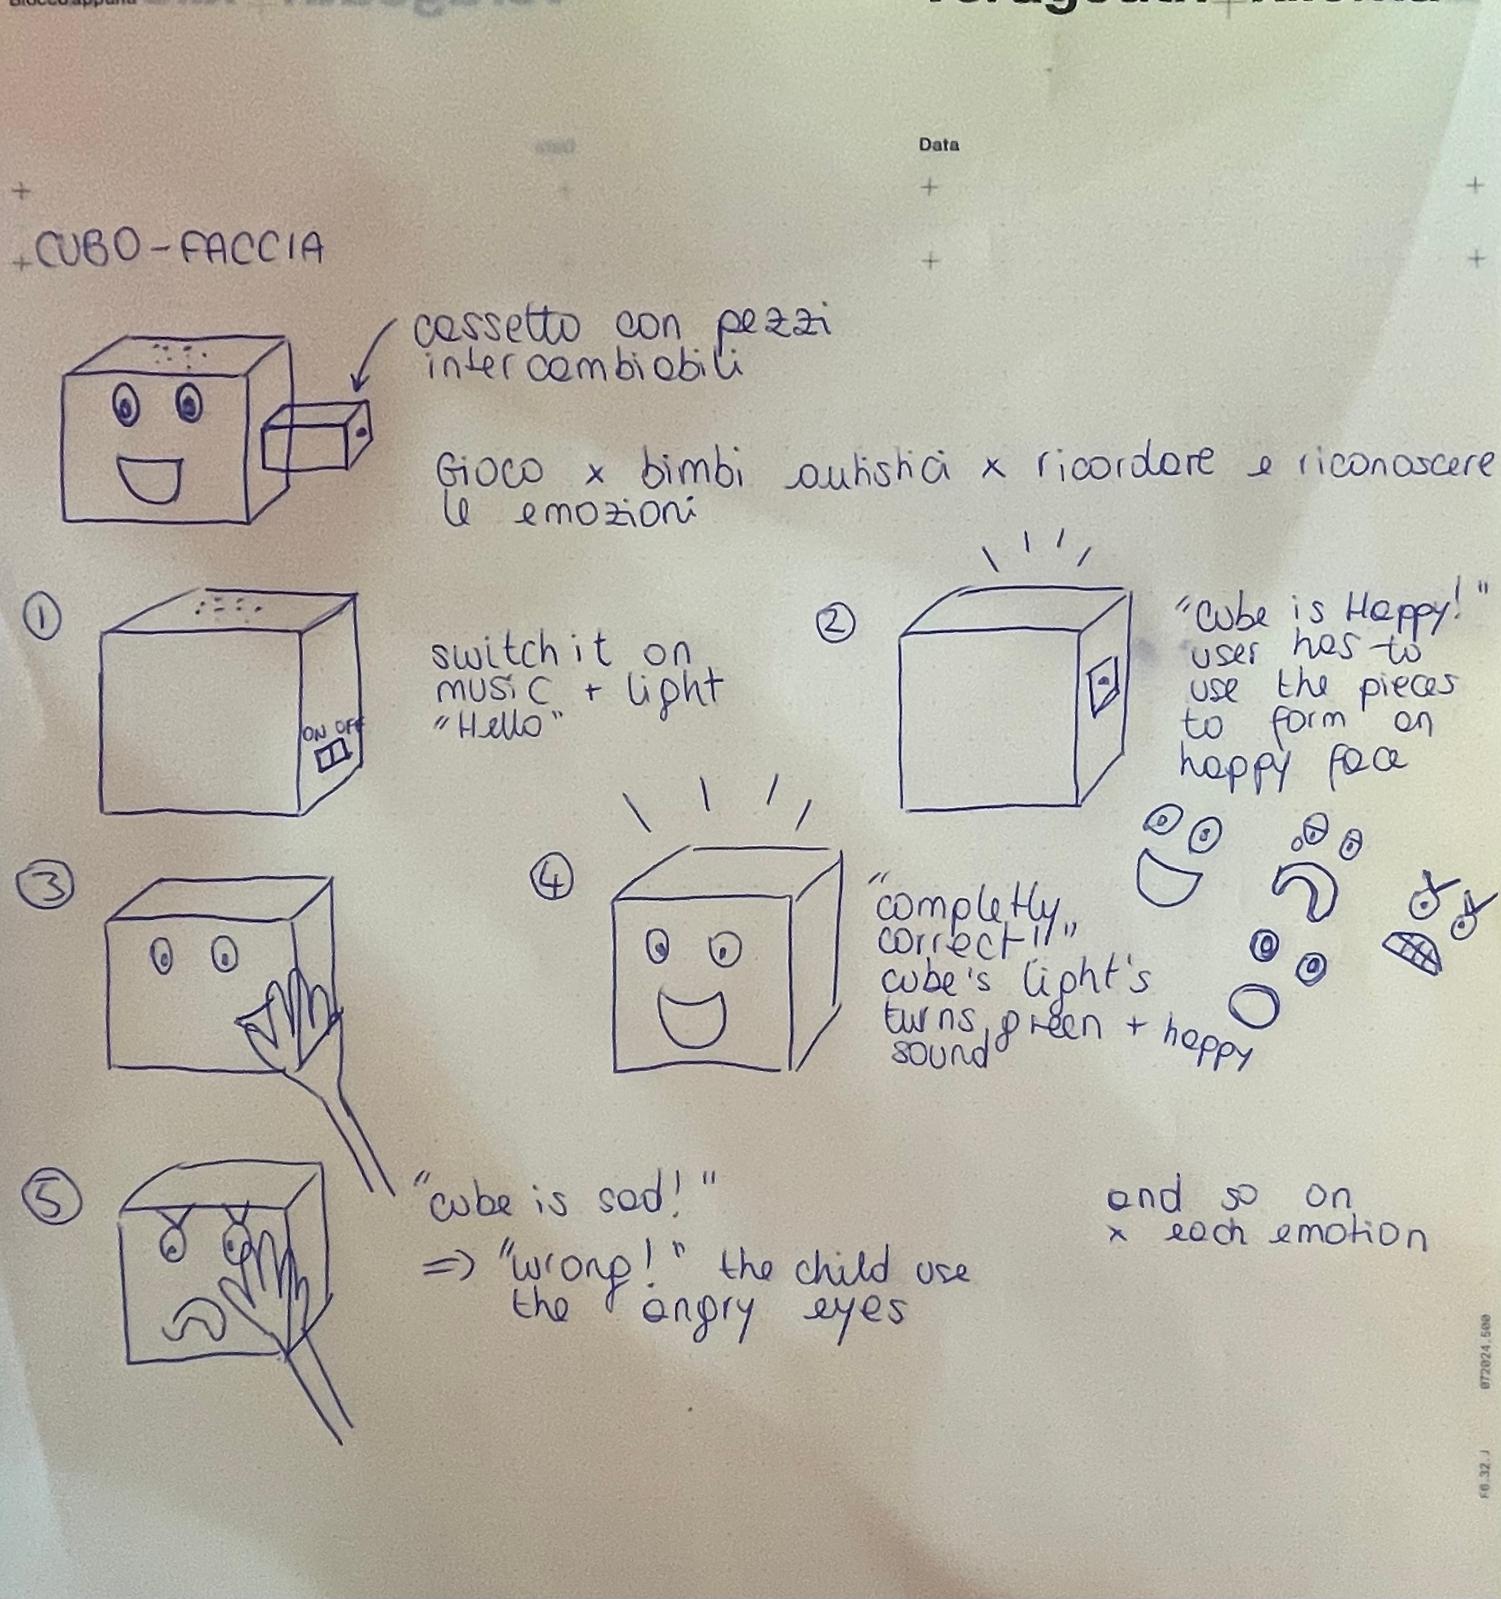 Data
CUBO-FACCIA
cassetto con pezzi
intercambiabili
Gioco x bimbi autistici x ricordare e riconoscere
le emozioni
1
switch it on
music + light
"Hello"
ON OFF
2
"Cube is Happy!"
user has to
use the pieces
to form an
happy face
3
4
"completly
correct!!"
cube's light's
turns green + happy
sound
5
"cube is sad!"
=> "wrong!" the child use
the angry eyes
and so on
x each emotion
072024.500
F6.32.J